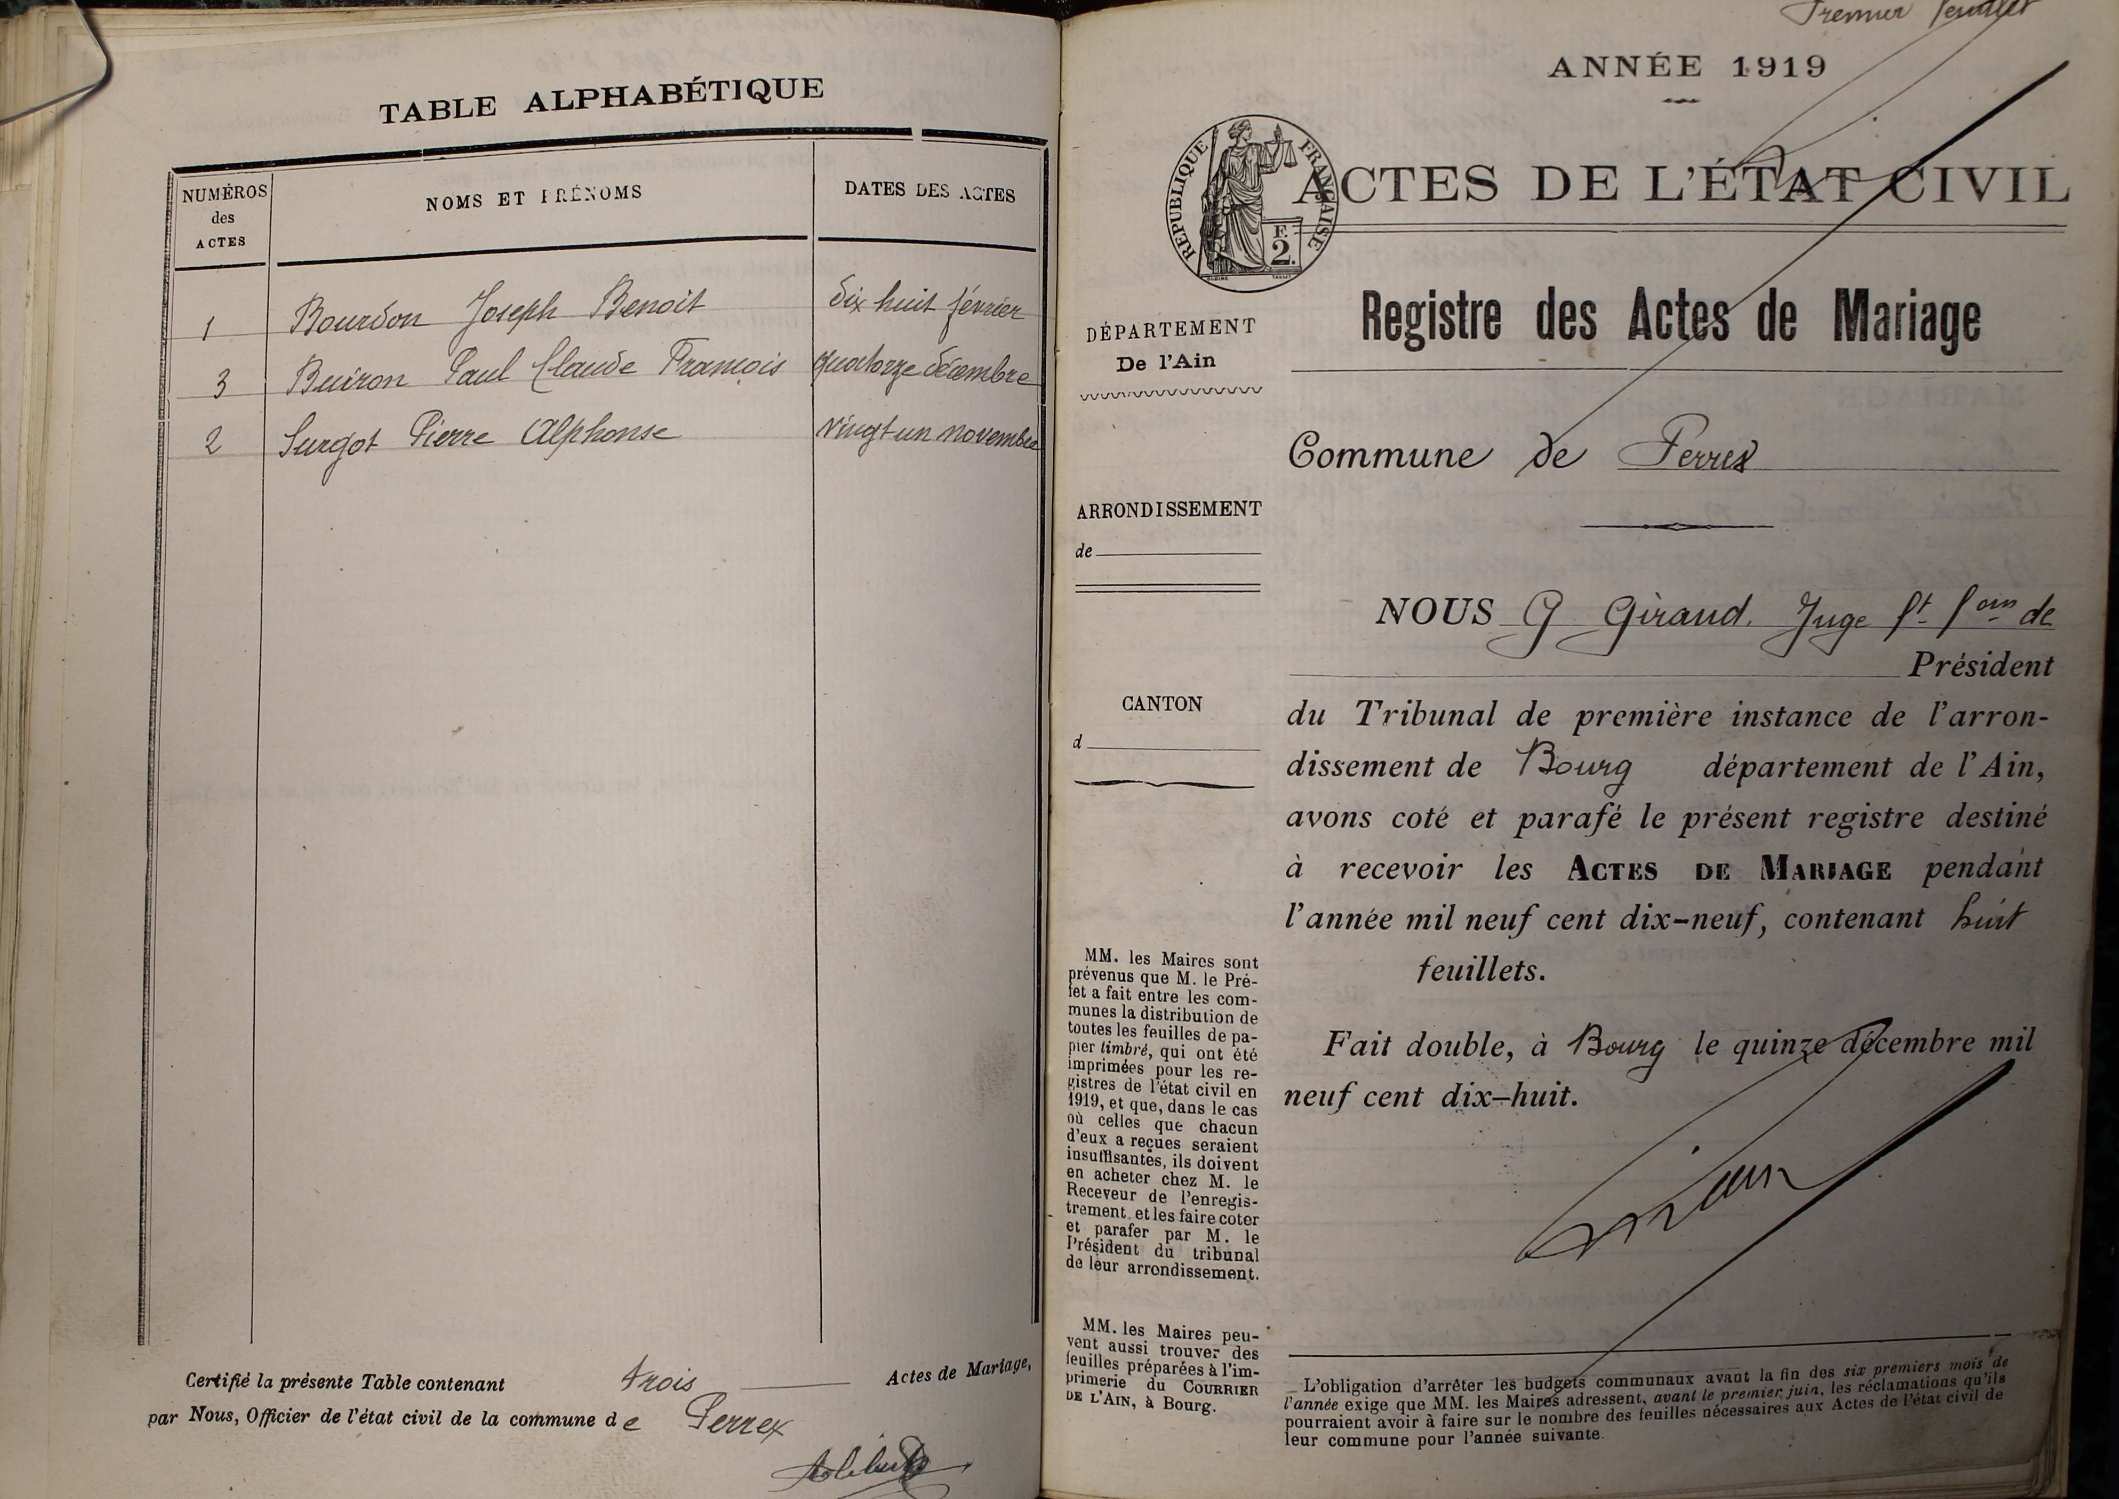 TABLE ALPHABÉTIQUE
NUMÉROS des ACTES
NOMS ET PRÉNOMS
DATES DES ACTES
1 Bourdon Joseph Benoit dix huit février
3 Buiron Paul Claude François quatorze décembre
2 Surgot Pierre Alphonse vingt un novembre
Certifié la présente Table contenant trois Actes de Mariage,
par Nous, Officier de l'état civil de la commune de Perrex
Premier feuillet
ANNÉE 1919
RÉPUBLIQUE FRANÇAISE
F.
2.
ACTES DE L'ÉTAT CIVIL
Registre des Actes de Mariage
DÉPARTEMENT
De l'Ain
Commune de Perrex
ARRONDISSEMENT
de
CANTON
d
NOUS G Giraud. Juge de
Président
du Tribunal de première instance de l'arron-
dissement de Bourg département de l'Ain,
avons coté et parafé le présent registre destiné
à recevoir les ACTES DE MARIAGE pendant
l'année mil neuf cent dix-neuf, contenant huit
feuillets.
Fait double, à Bourg le quinze décembre mil
neuf cent dix-huit.
MM. les Maires sont
prévenus que M. le Pré-
fet a fait entre les com-
munes la distribution de
toutes les feuilles de pa-
pier timbré, qui ont été
imprimées pour les re-
gistres de l'état civil en
1919, et que, dans le cas
où celles que chacun
d'eux a reçues seraient
insuffisantes, ils doivent
en acheter chez M. le
Receveur de l'enregis-
trement et les faire coter
et parafer par M. le
Président du tribunal
de leur arrondissement.
MM. les Maires peu-
vent aussi trouver des
feuilles préparées à l'im-
primerie du COURRIER
DE L'AIN, à Bourg.
L'obligation d'arrêter les budgets communaux avant la fin des six premiers mois de
l'année exige que MM. les Maires adressent, avant le premier juin, les réclamations qu'ils
pourraient avoir à faire sur le nombre des feuilles nécessaires aux Actes de l'état civil de
leur commune pour l'année suivante.